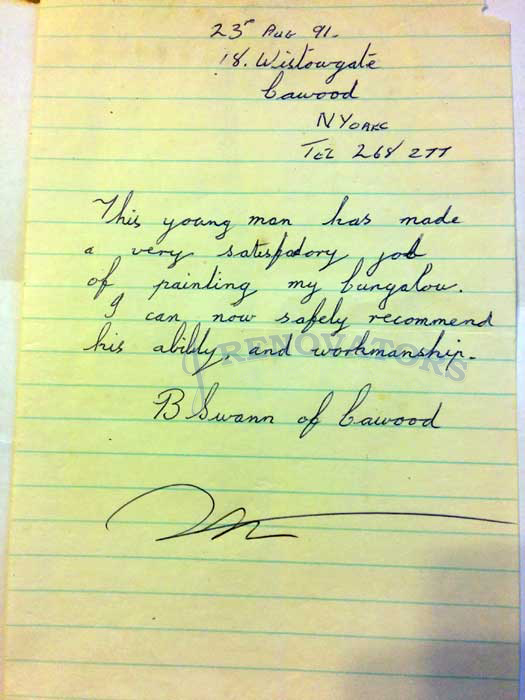 23rd Aug 91.
18. Wistowgate
Cawood
N Yorks
Tel 268 277
This young man has made
a very satisfactory job
of painting my bungalow.
I can now safely recommend
his ability, and workmanship.
RENOVATORS
B Swann of Cawood